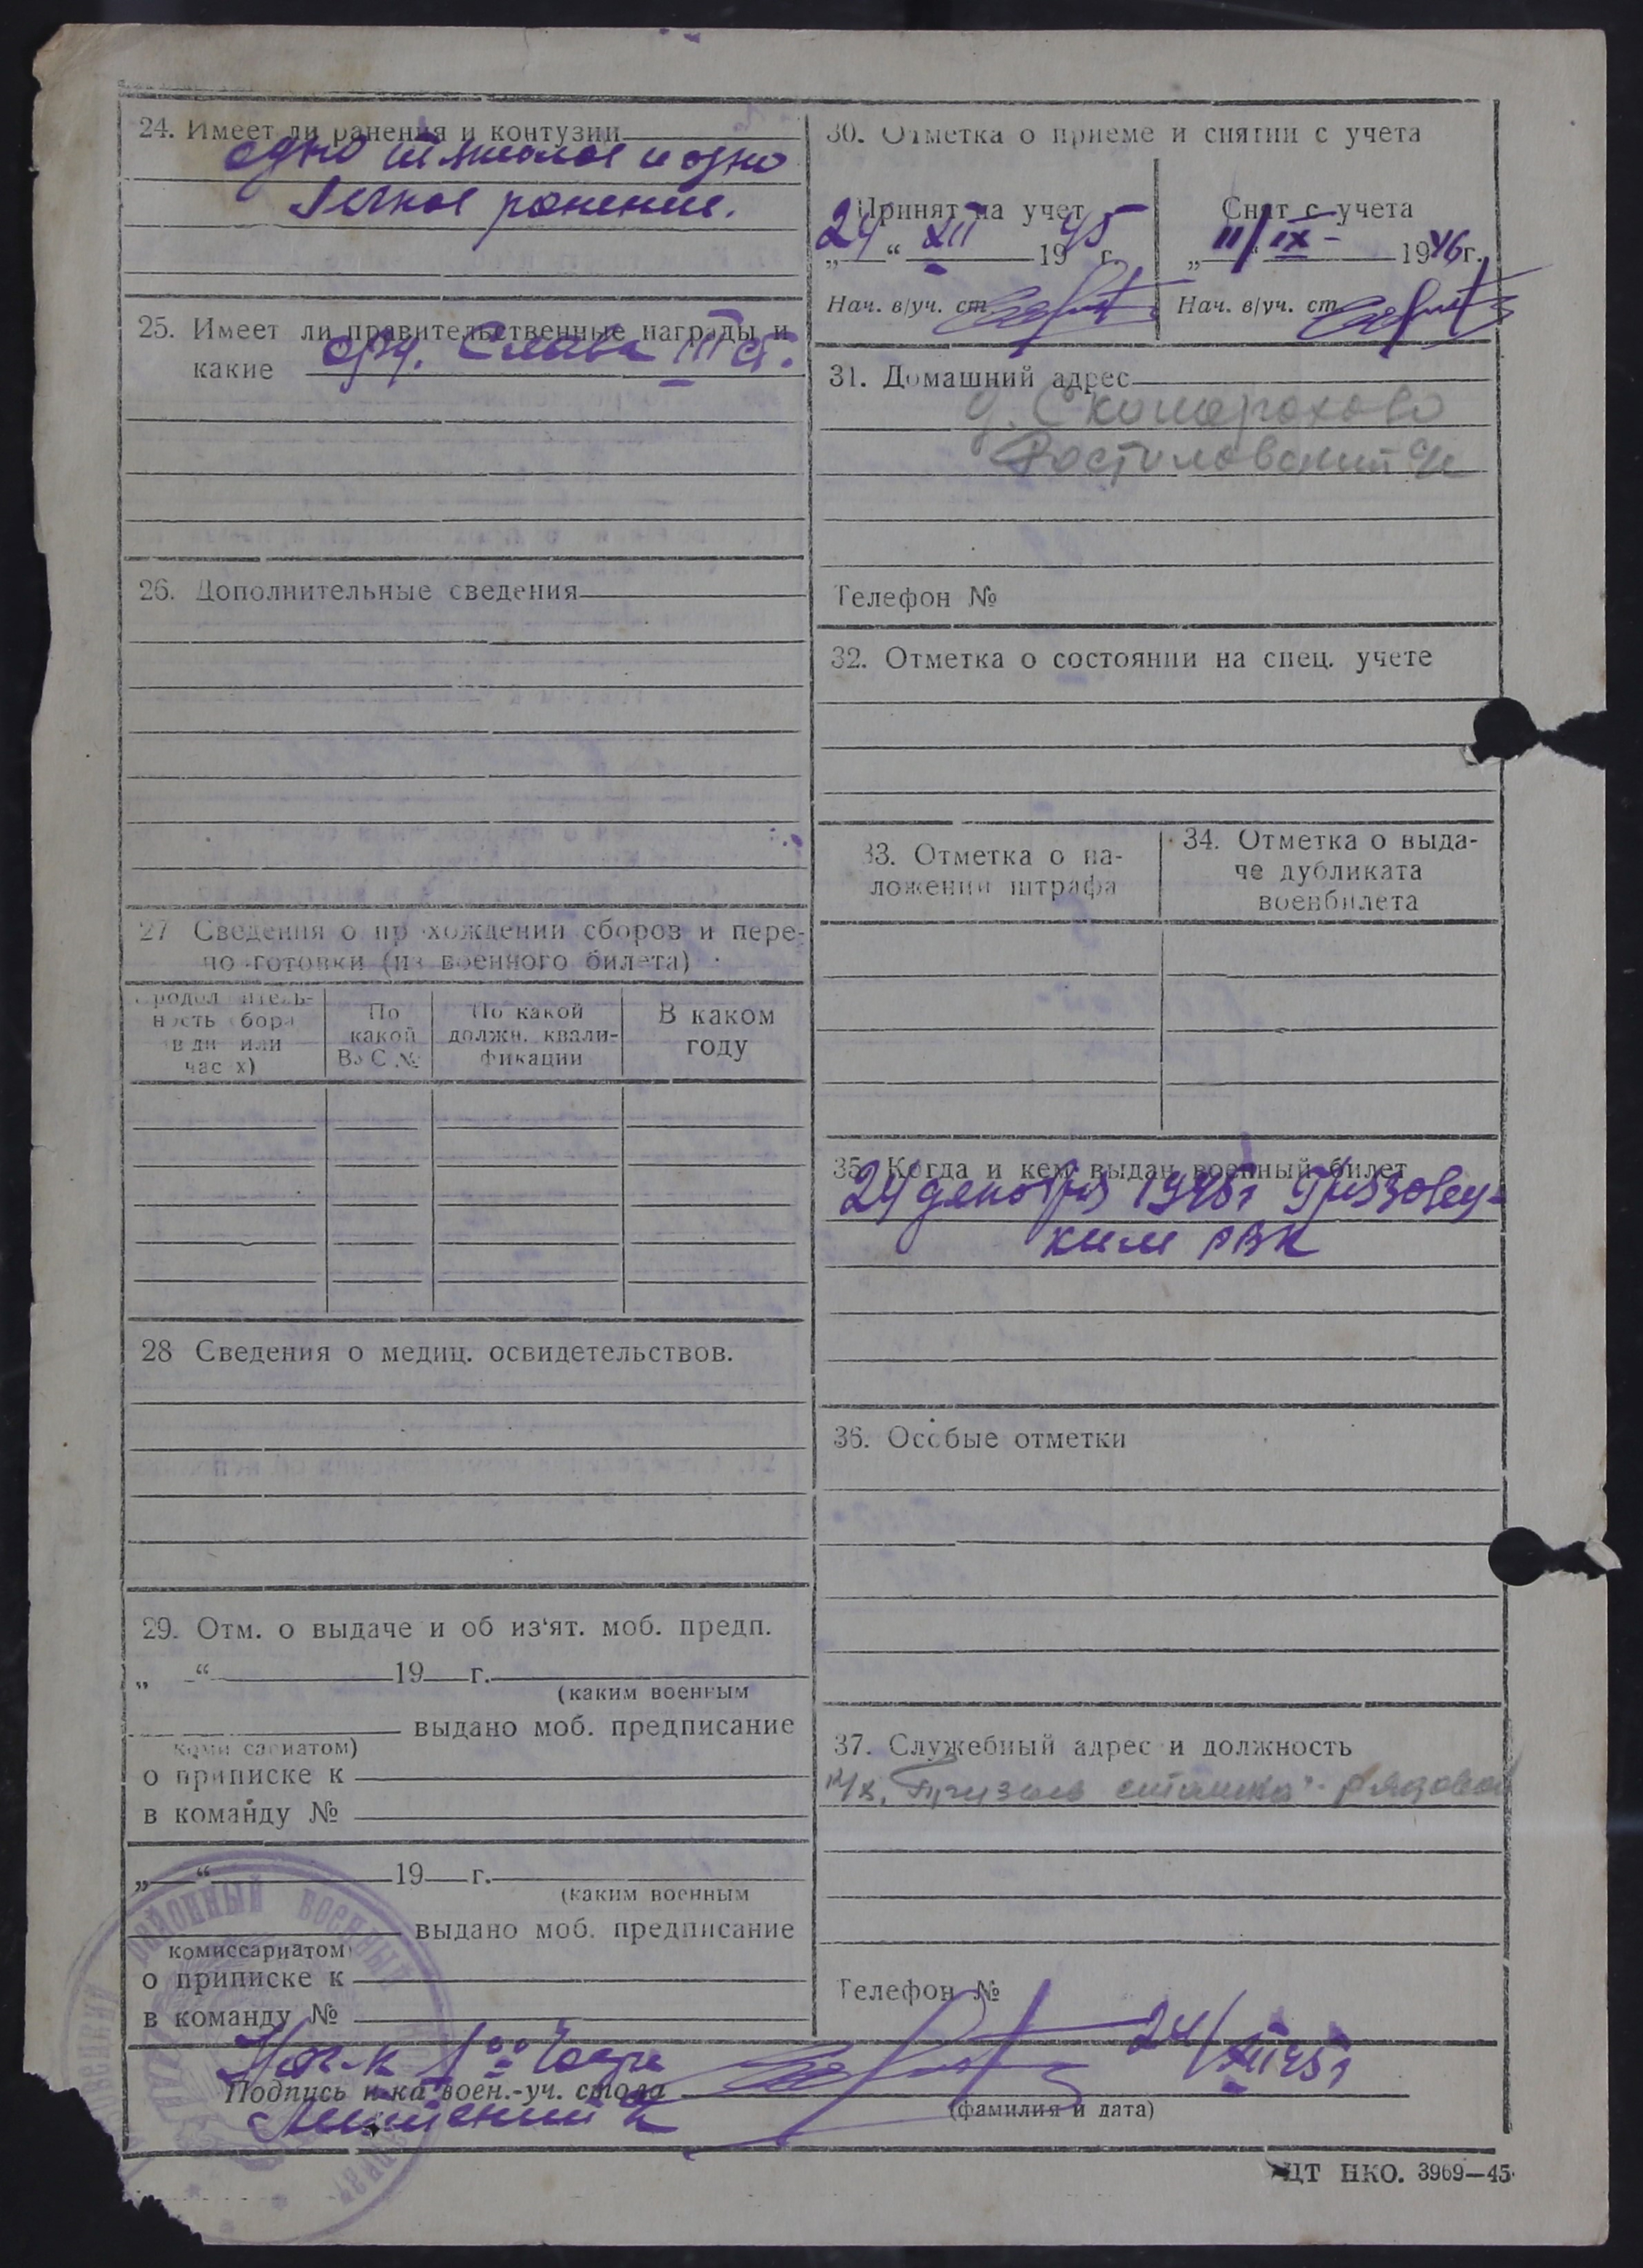 24. Имеет ли ранения и контузии
одно тяжелое и одно
легкое ранение.
25. Имеет ли правительственные награды и
какие орд. Слава III ст.
26. Дополнительные сведения
27 Сведения о прохождении сборов и пере-
подготовки (из военного билета)
Продолжитель-
ность сбора
в дн или
часах)
По
какой
ВУС №
По какой
должн. квали-
фикации
В каком
году
28 Сведения о медиц. освидетельствов.
29. Отм. о выдаче и об из‘ят. моб. предп.
„ “ 19 г.
(каким военным
выдано моб. предписание
комиссариатом)
о приписке к
в команду №
„ “ 19 г.
(каким военным
выдано моб. предписание
комиссариатом)
о приписке к
в команду №
30. Отметка о приеме и снятии с учета
Принят на учет
24 “ XII 1945 г.
Нач. в/уч. ст.
Снят с учета
„11/IX - 1946 г.
Нач. в/уч. ст.
31. Домашний адрес
д. Скоморохово
Ростиловский с/с
Телефон №
32. Отметка о состоянии на спец. учете
33. Отметка о на-
ложении штрафа
34. Отметка о выда-
че дубликата
военбилета
35. Когда и кем выдан военный билет
24 декабря 1945г Грязовец-
ким РВК
36. Особые отметки
37. Служебный адрес и должность
рядовой
Телефон №
Нач-к
Подпись н-ка воен.-уч. стола
24/XII 45г
(фамилия и дата)
РАЙОННЫЙ ВОЕННЫЙ
ЦТ НКО. 3969—45